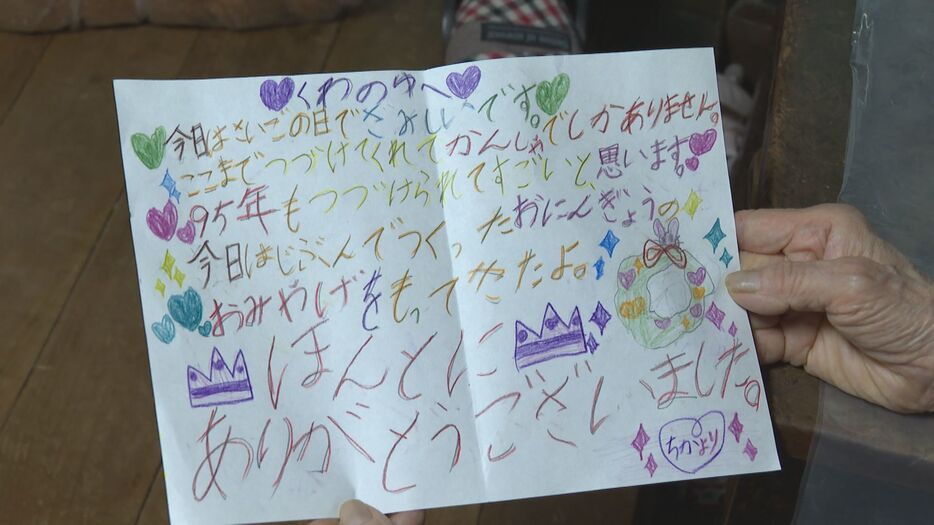 くわのゆへ
今日はさいごの日でさみしいです。
ここまでつづけてくれてかんしゃでしかありません。
95年もつづけられてすごいと、思います。
今日はじぶんでつくったおにんぎょうの
おみやげをもってきたよ。
ほんとに
ありがとうございました。
ちかより